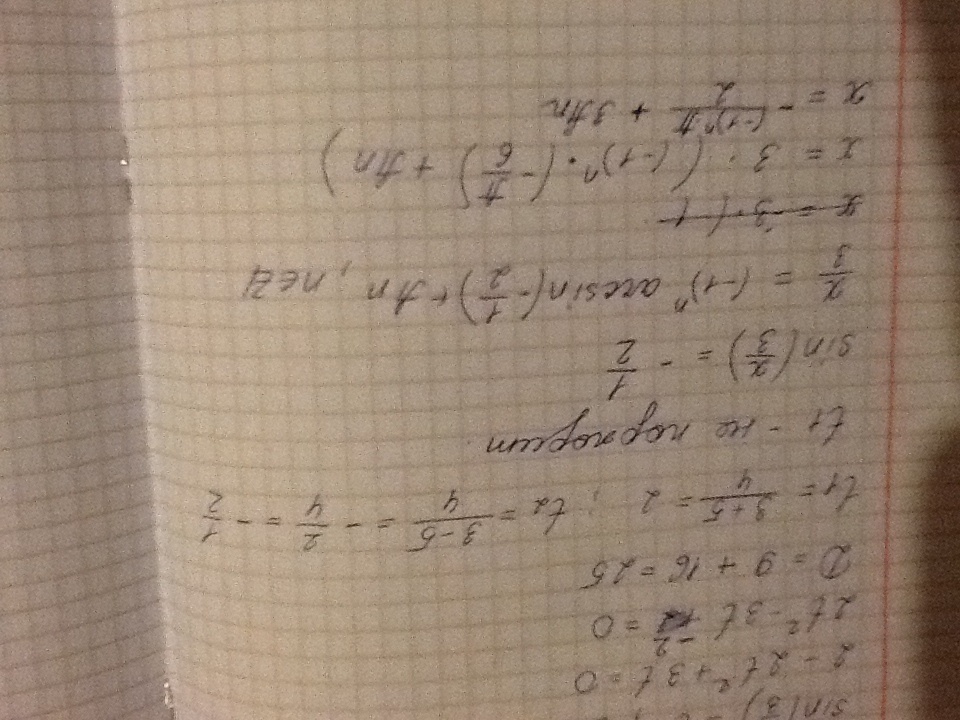 sin(x/3) =
2 - 2t² + 3t = 0
2t² - 3t - 2 = 0
D = 9 + 16 = 25
t₁ = (3+5)/4 = 2 ; t₂ = (3-5)/4 = -2/4 = -1/2
t₁ - не подходит.
sin(x/3) = -1/2
x/3 = (-1)ⁿ arcsin(-1/2) + πn, n∈Z
x = 3·(
x = 3·((-1)ⁿ·(-π/6) + πn)
x = -(-1)ⁿπ/2 + 3πn